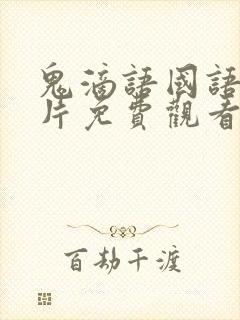 鬼滴語國語
片免費觀看
百劫千渡